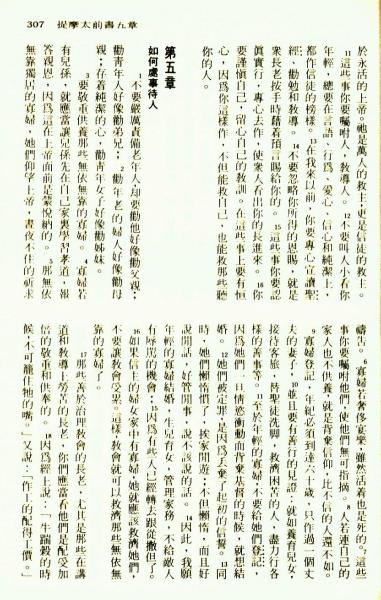 307 提摩太前書五章
於永活的上帝。祂是萬人的救主、更是信徒的救主。
11這些事你要囑咐人，教導人。12不要叫人小看你
年輕，總要在言語、行為、愛心、信心和純潔上，
都作信徒的榜樣。13在我來以前，你要專心宣讀聖
經、勸勉和教導。14不要忽略你所得的恩賜，就是
眾長老按手時藉着預言賜給你的。15這些事你要認
真實行，專心去作，使眾人看出你的長進來。16你
要謹慎自己，留心自己的教訓。在這些事上要有恒
心，因為你這樣作，不但能救自己，也能救那些聽
你的人。
第五章
如何處事待人
1不要嚴厲責備老年人，却要勸他好像勸父親；
勸青年人好像勸弟兄；2勸年老的婦人好像勸母
親；存着純潔的心，勸青年女子好像勸姊妹。
3要敬重供養那些無依無靠的寡婦。4寡婦若
有兒孫，就應當讓兒孫先在自己家裏學習孝道，報
答親恩，因為這在上帝面前是蒙悅納的。5那無依
無靠獨居的寡婦，她們仰望上帝，晝夜不住的祈求
禱告。6寡婦若奢侈宴樂，雖然活着也是死的。7這些
事你要囑咐她們，使他們無可指摘。8人若連自己的
家人也不供養，就是背棄信仰，比不信的人還不如。
9寡婦登記，年紀必須到達六十歲，只作過一個丈
夫的妻子，10並且要有善行的見證；就如養育兒女，
接待客旅，替聖徒洗脚，救濟困苦的人，盡力行各
樣的善事等。11至於年輕的寡婦，不要給她們登記，
因為她們一旦情慾衝動而背棄基督的時候，就想結
婚。12她們被定罪，是因為丟棄了起初的信誓。13同
時，她們懶惰慣了，挨家閒遊；不但懶惰，而且好
說閒話，好管閒事，說不該說的話。14因此，我願
年輕的寡婦結婚，生兒育女，管理家務，不給敵人
有辱罵的機會；15因為有些人已經轉去跟從撒但了。
16如果信主的婦女家中有寡婦，她就應該救濟她們，
不要讓教會受累。這樣，教會就可以救濟那些無依無
靠的寡婦了。
17那些善於治理教會的長老，尤其是那些在講
道和教導上勞苦的長老，你們應當看他們是配受加
倍的敬重和供奉的。18因為經上說：「牛踹穀的時
候，不可籠住牠的嘴。」又說：「作工的配得工價。」